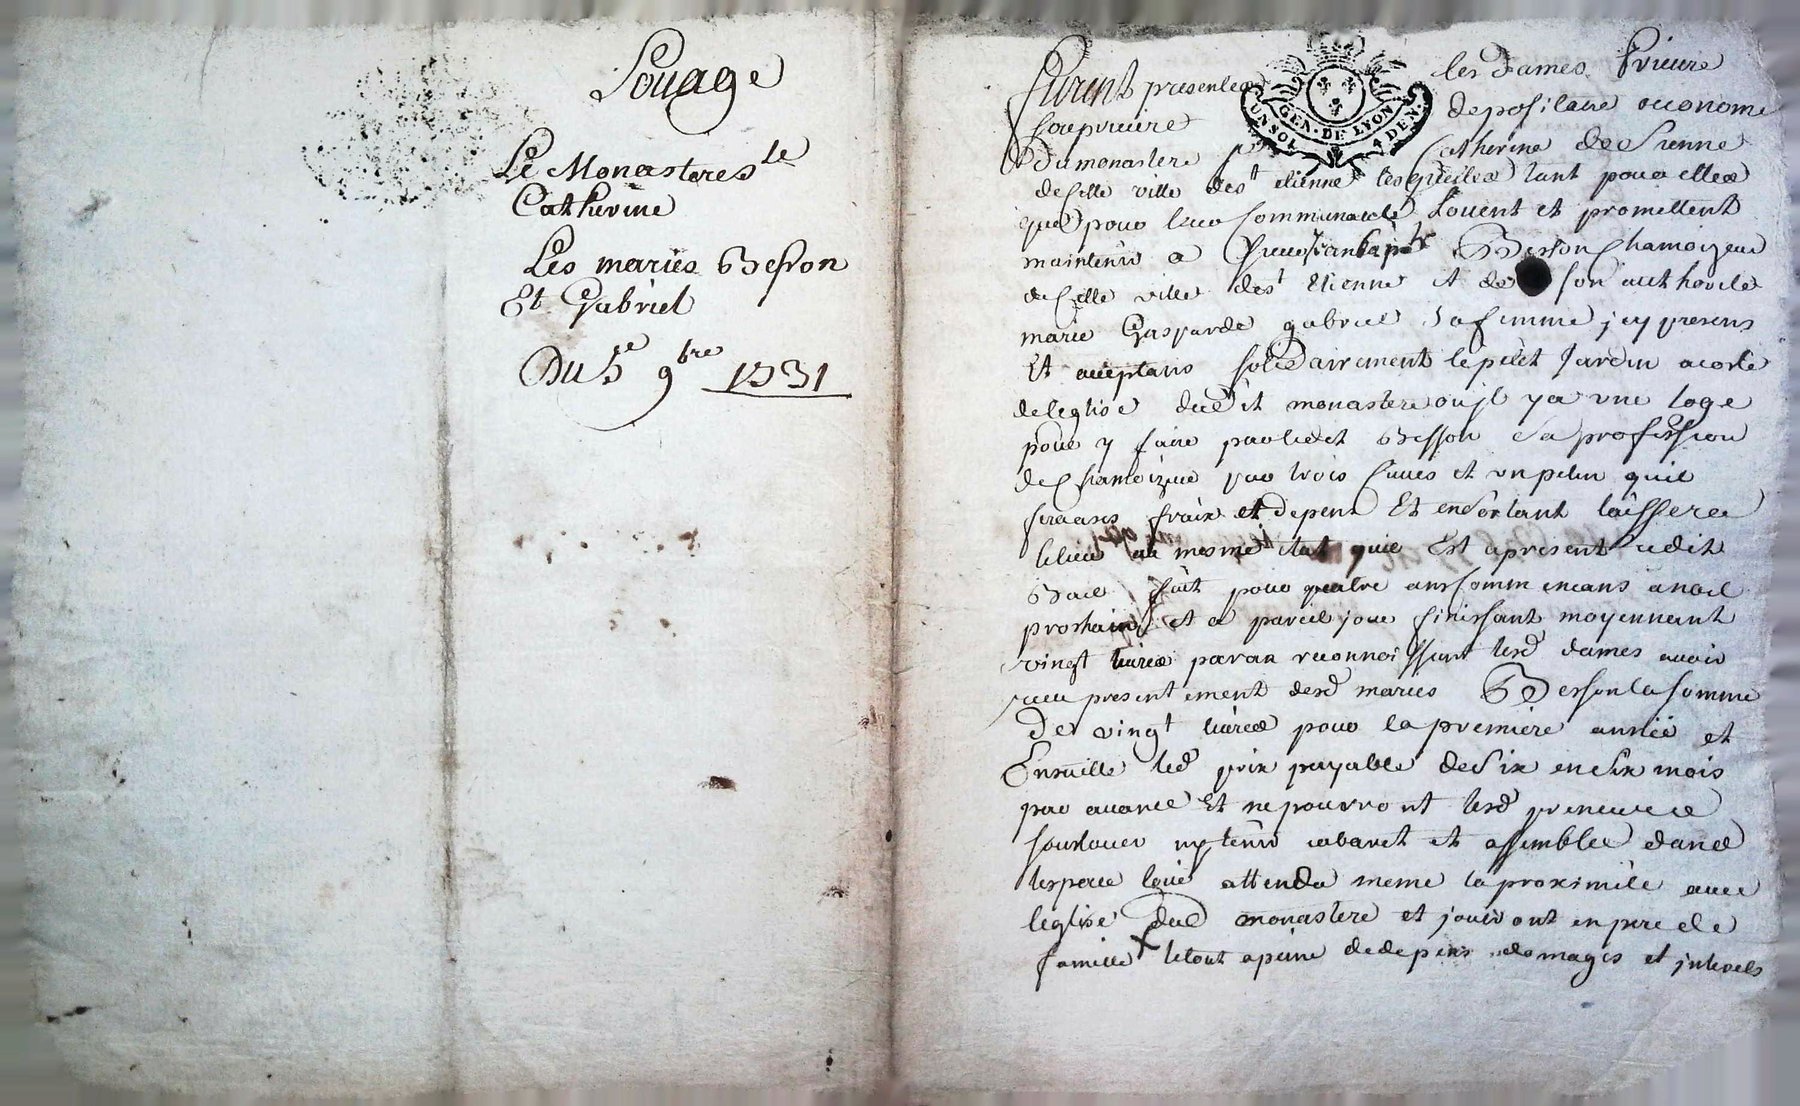 Louage
Le Monastere S.te
Catherine
Les mariés Besson
Et Gabriel
Du 5e 9bre 1731
Furent presentes les Dames Prieure
souprieure depositaire œconome
Du monastere Ste Catherine de Sienne
de cette ville de st etienne lesquelles tant pour elles
que pour leur Communauté Louent et promettent
maintenir a Sieur Jean bapte Besson Chamoizeur
de cette ville de st Etienne et de son authorité
marie Gasparde gabriel sa femme jcy presens
Et acceptans solidairement le petit Jardin a costé
de leglise dudit monastere ou jl y a une loge
pour y faire par ledit Besson sa profession
de Chamoizeur par trois Cuves et un pelin quil
fera a ses fraix et depens Et en sortant laissera
le lieu au mesme etat quil Est a present Ledit
Bail fait pour quatre ans Commencans a noel
prochain et a pareil jour finissant moyennant
vingt livres par an reconnoissant lesd dames avoir
receu presentement desd mariés Besson la somme
De vingt livres pour la premiere année et
Ensuitte led prix payable de Six en Six mois
par avance Et ne pourront lesd preneurs
souslouer ny tenir cabaret et assemblee dans
lespace loué attendu meme la proximité avec
leglise dud monastere et jouiront en pere de
famille le tout a peine de depens domages et jnterets
GEN. DE LYON
UN SOL 4 DEN.